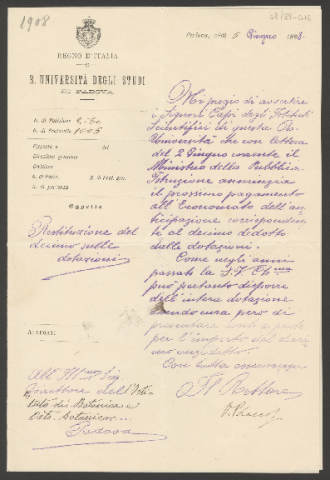 1908
REGNO D'ITALIA
R. UNIVERSITÀ DEGLI STUDI
DI PADOVA
Padova, addì 5 Giugno 1908.
N. di Posizione
N. di Protocollo 1005
Risposta a
del
Divisione
N. di partenza
Oggetto
Restituzione del
decimo sulle
dotazioni
Mi pregio di avvertire
i Signori Capi degli Istituti
Scientifici di questa R.
Università che con lettera
del 2 Giugno corrente il
Ministero della Pubblica
Istruzione annunzia
il prossimo pagamento
all'Economato dell'an-
ticipazione corrisponden-
te al decimo dedotto
dalle dotazioni.
Come negli anni
passati la S. V. Ill.ma
può pertanto disporre
dell'intera dotazione
avendo cura però di
presentare conti a parte
per l'importo del deci-
mo anzidetto.
Con tutta osservanza
Il Rettore
All' Ill.mo Sig.
Direttore dell'Isti-
tuto di Botanica e
Orto botanico
Padova